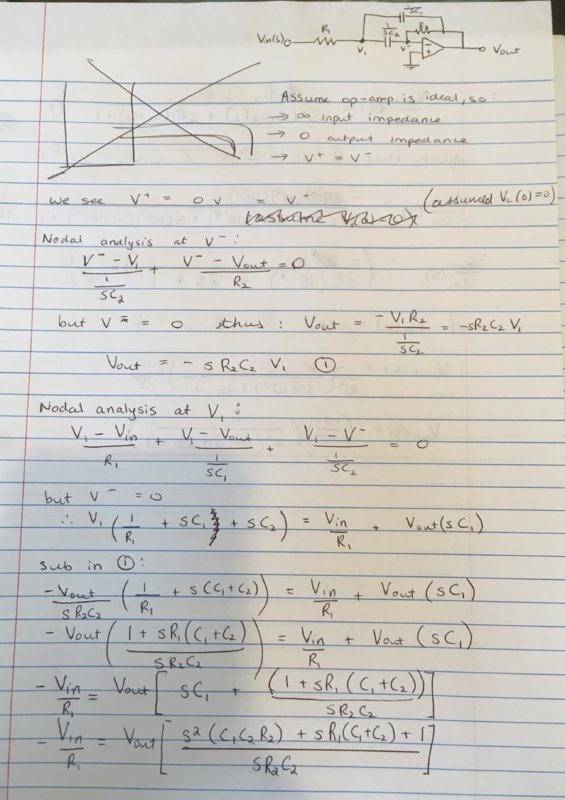 1/SC₁
R₂
Vin(s) R₁ 1/SC₂
V₁ V⁻ Vout
Assume op-amp is ideal, so:
→ ∞ input impedance
→ 0 output impedance
→ V⁺ = V⁻
we see V⁺ = 0 v = V⁻ (assumed Vc(0)=0)
Nodal analysis at V⁻:
(V⁻ - V₁)/(1/SC₂) + (V⁻ - Vout)/R₂ = 0
but V⁻ = 0 thus: Vout = -V₁R₂/(1/SC₂) = -sR₂C₂ V₁
Vout = - s R₂C₂ V₁ ①
Nodal analysis at V₁:
(V₁ - Vin)/R₁ + (V₁ - Vout)/(1/SC₁) + (V₁ - V⁻)/(1/SC₂) = 0
but V⁻ = 0
∴ V₁ (1/R₁ + SC₁ + SC₂) = Vin/R₁ + Vout(sC₁)
sub in ①:
-Vout/(SR₂C₂) (1/R₁ + s(C₁+C₂)) = Vin/R₁ + Vout (sC₁)
- Vout ((1 + sR₁(C₁+C₂))/(SR₂C₂)) = Vin/R₁ + Vout (sC₁)
- Vin/R₁ = Vout [sC₁ + (1 + sR₁(C₁+C₂))/(SR₂C₂)]
- Vin/R₁ = Vout [(s²(C₁C₂R₂) + sR₁(C₁+C₂) + 1)/(SR₂C₂)]